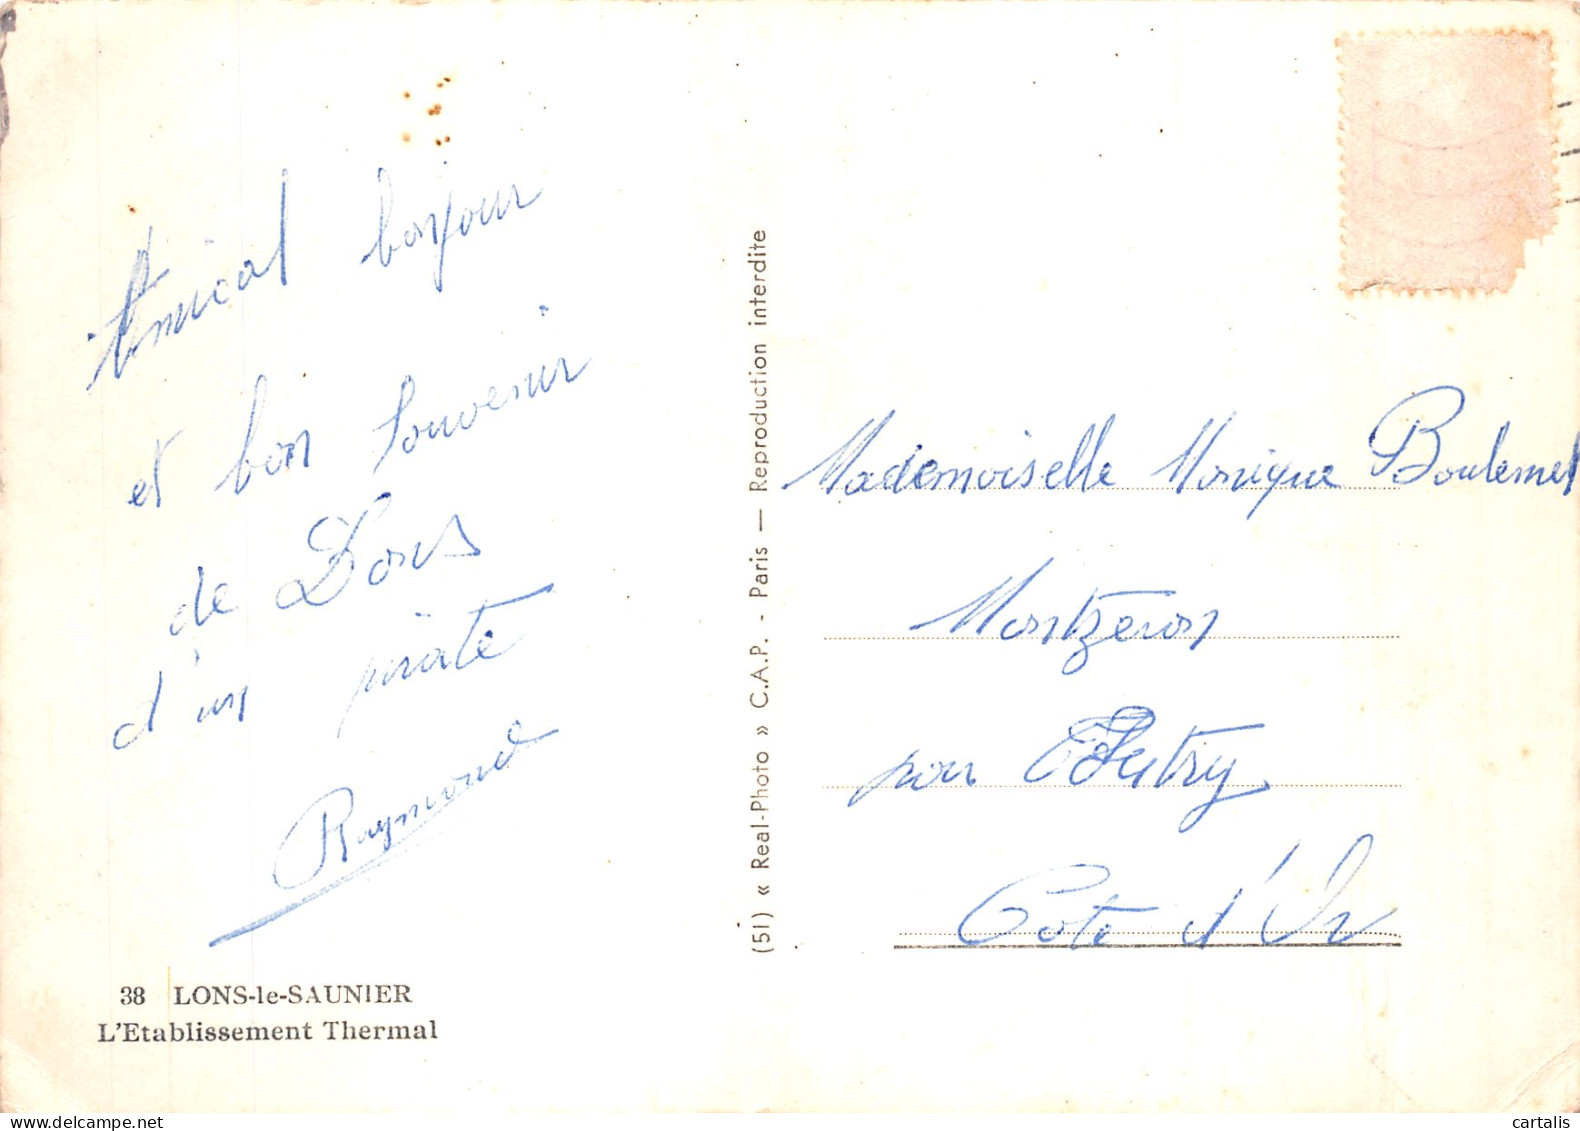 Amical bonjour
et bon souvenir
de Lons
d'un pirate
Raymond
38 LONS-le-SAUNIER
L'Etablissement Thermal
(51) « Real-Photo » C.A.P. - Paris — Reproduction interdite
Mademoiselle Monique Boulemet
Montzeron
par
Cote d'Or
cartalis